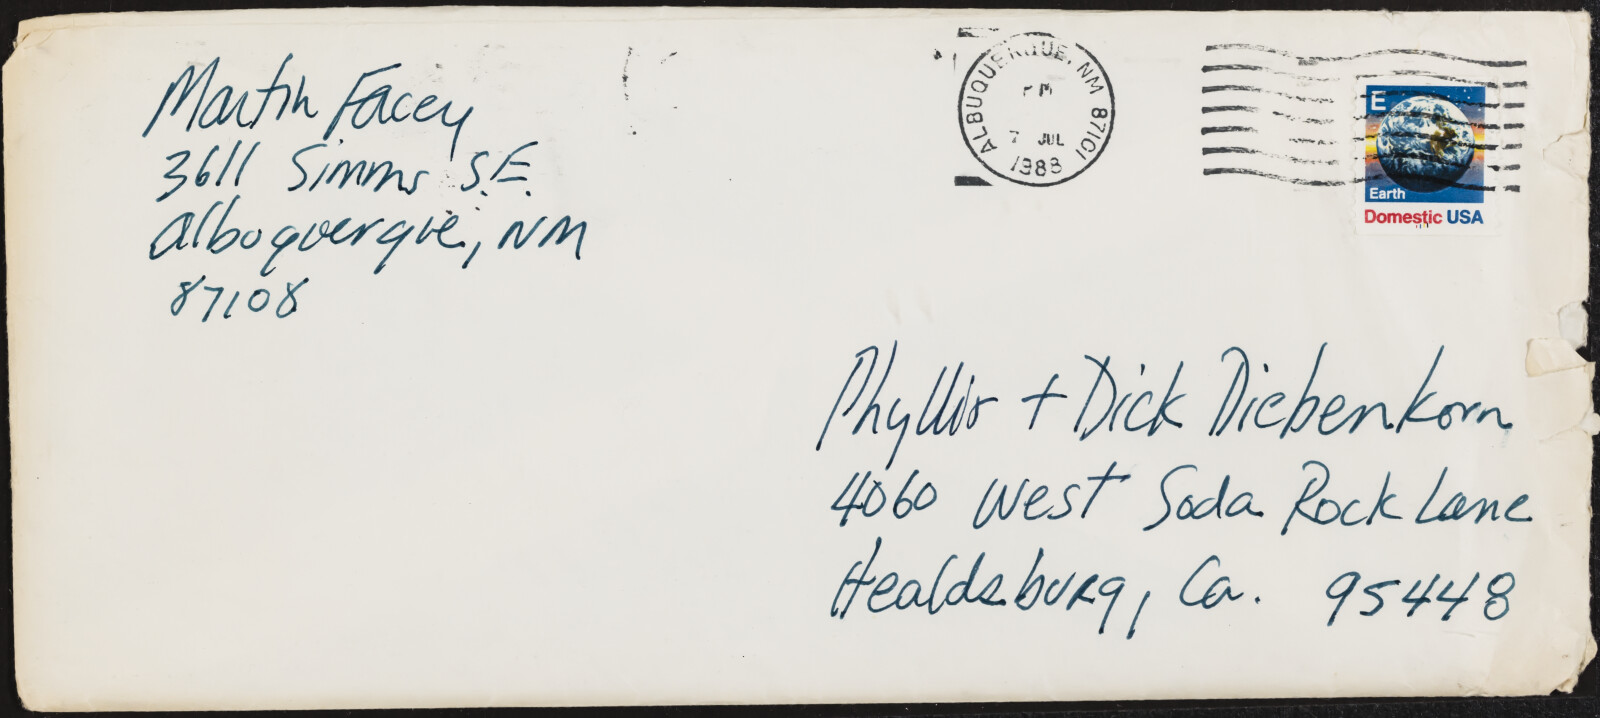 Martin Facey
3611 Simms S.E.
Albuquerque, NM
87108
ALBUQUERQUE, NM 87101
PM
7 JUL
1988
E
Earth
Domestic USA
Phyllis + Dick Diebenkorn
4060 West Soda Rock Lane
Healdsburg, Ca. 95448